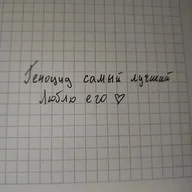 Геноцид самый лучший
Люблю его ♡